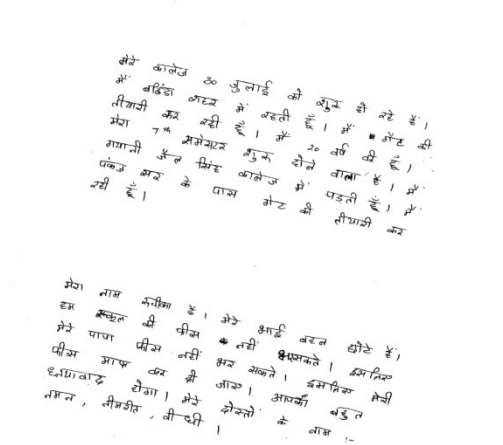 मेरे कालेज 30 जुलाई को शुरू हो रहे हैं।
मैं बठिंडा शहर में रहती हूँ। मैं गेट की
तैयारी कर रही हूँ। मैं 20 वर्ष की हूँ।
मेरा 7th समेस्टर शुरू होने वाला है। मैं
गयानी जैल सिंह कालेज में पड़ती हूँ। मैं
पंकज सर के पास गेट की तैयारी कर
रही हूँ।
मेरा नाम है। मेरे भाई बहन छोटे हैं,
हम स्कूल की फीस नहीं सकते। इसलिए
मेरे पापा फीस नहीं भर सकते। इसलिए मेरी
फीस माफ कर दी जाए। आपका बहुत
धन्यावाद होगा। मेरे दोस्तो के नाम
नमन,